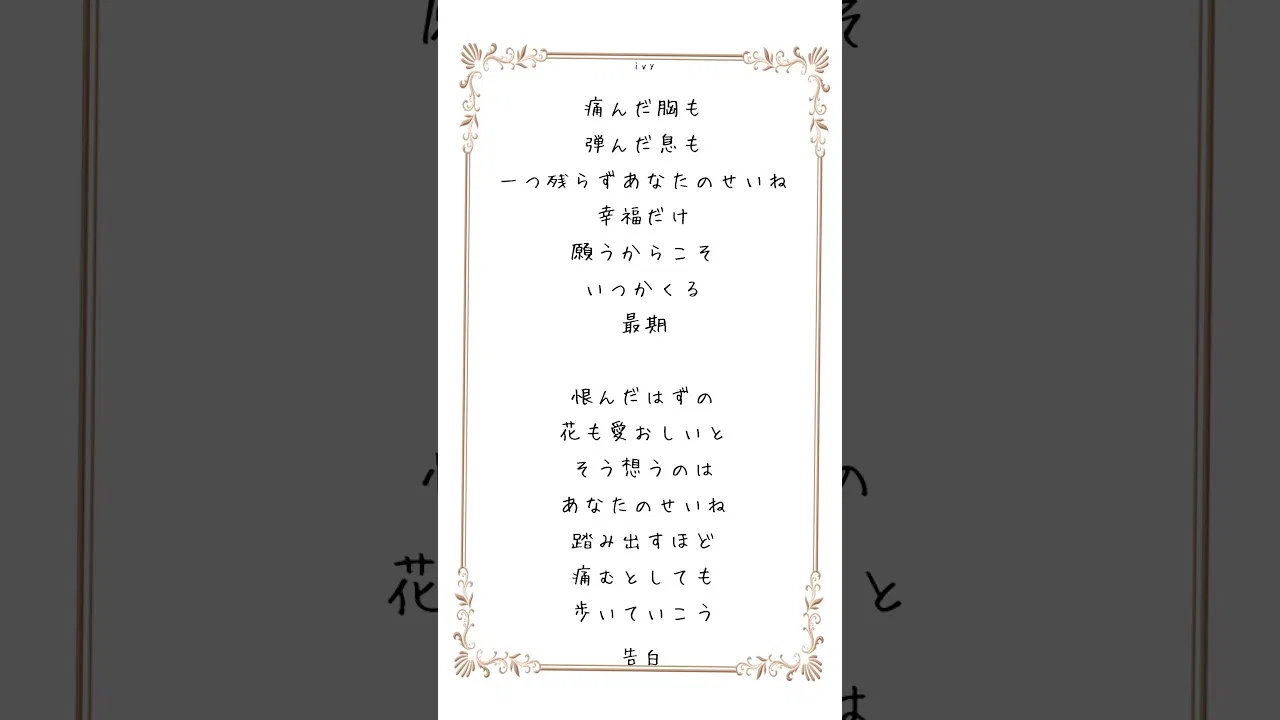 ivy
痛んだ胸も
弾んだ息も
一つ残らずあなたのせいね
幸福だけ
願うからこそ
いつかくる
最期
恨んだはずの
花も愛おしいと
そう想うのは
あなたのせいね
踏み出すほど
痛むとしても
歩いていこう
告白